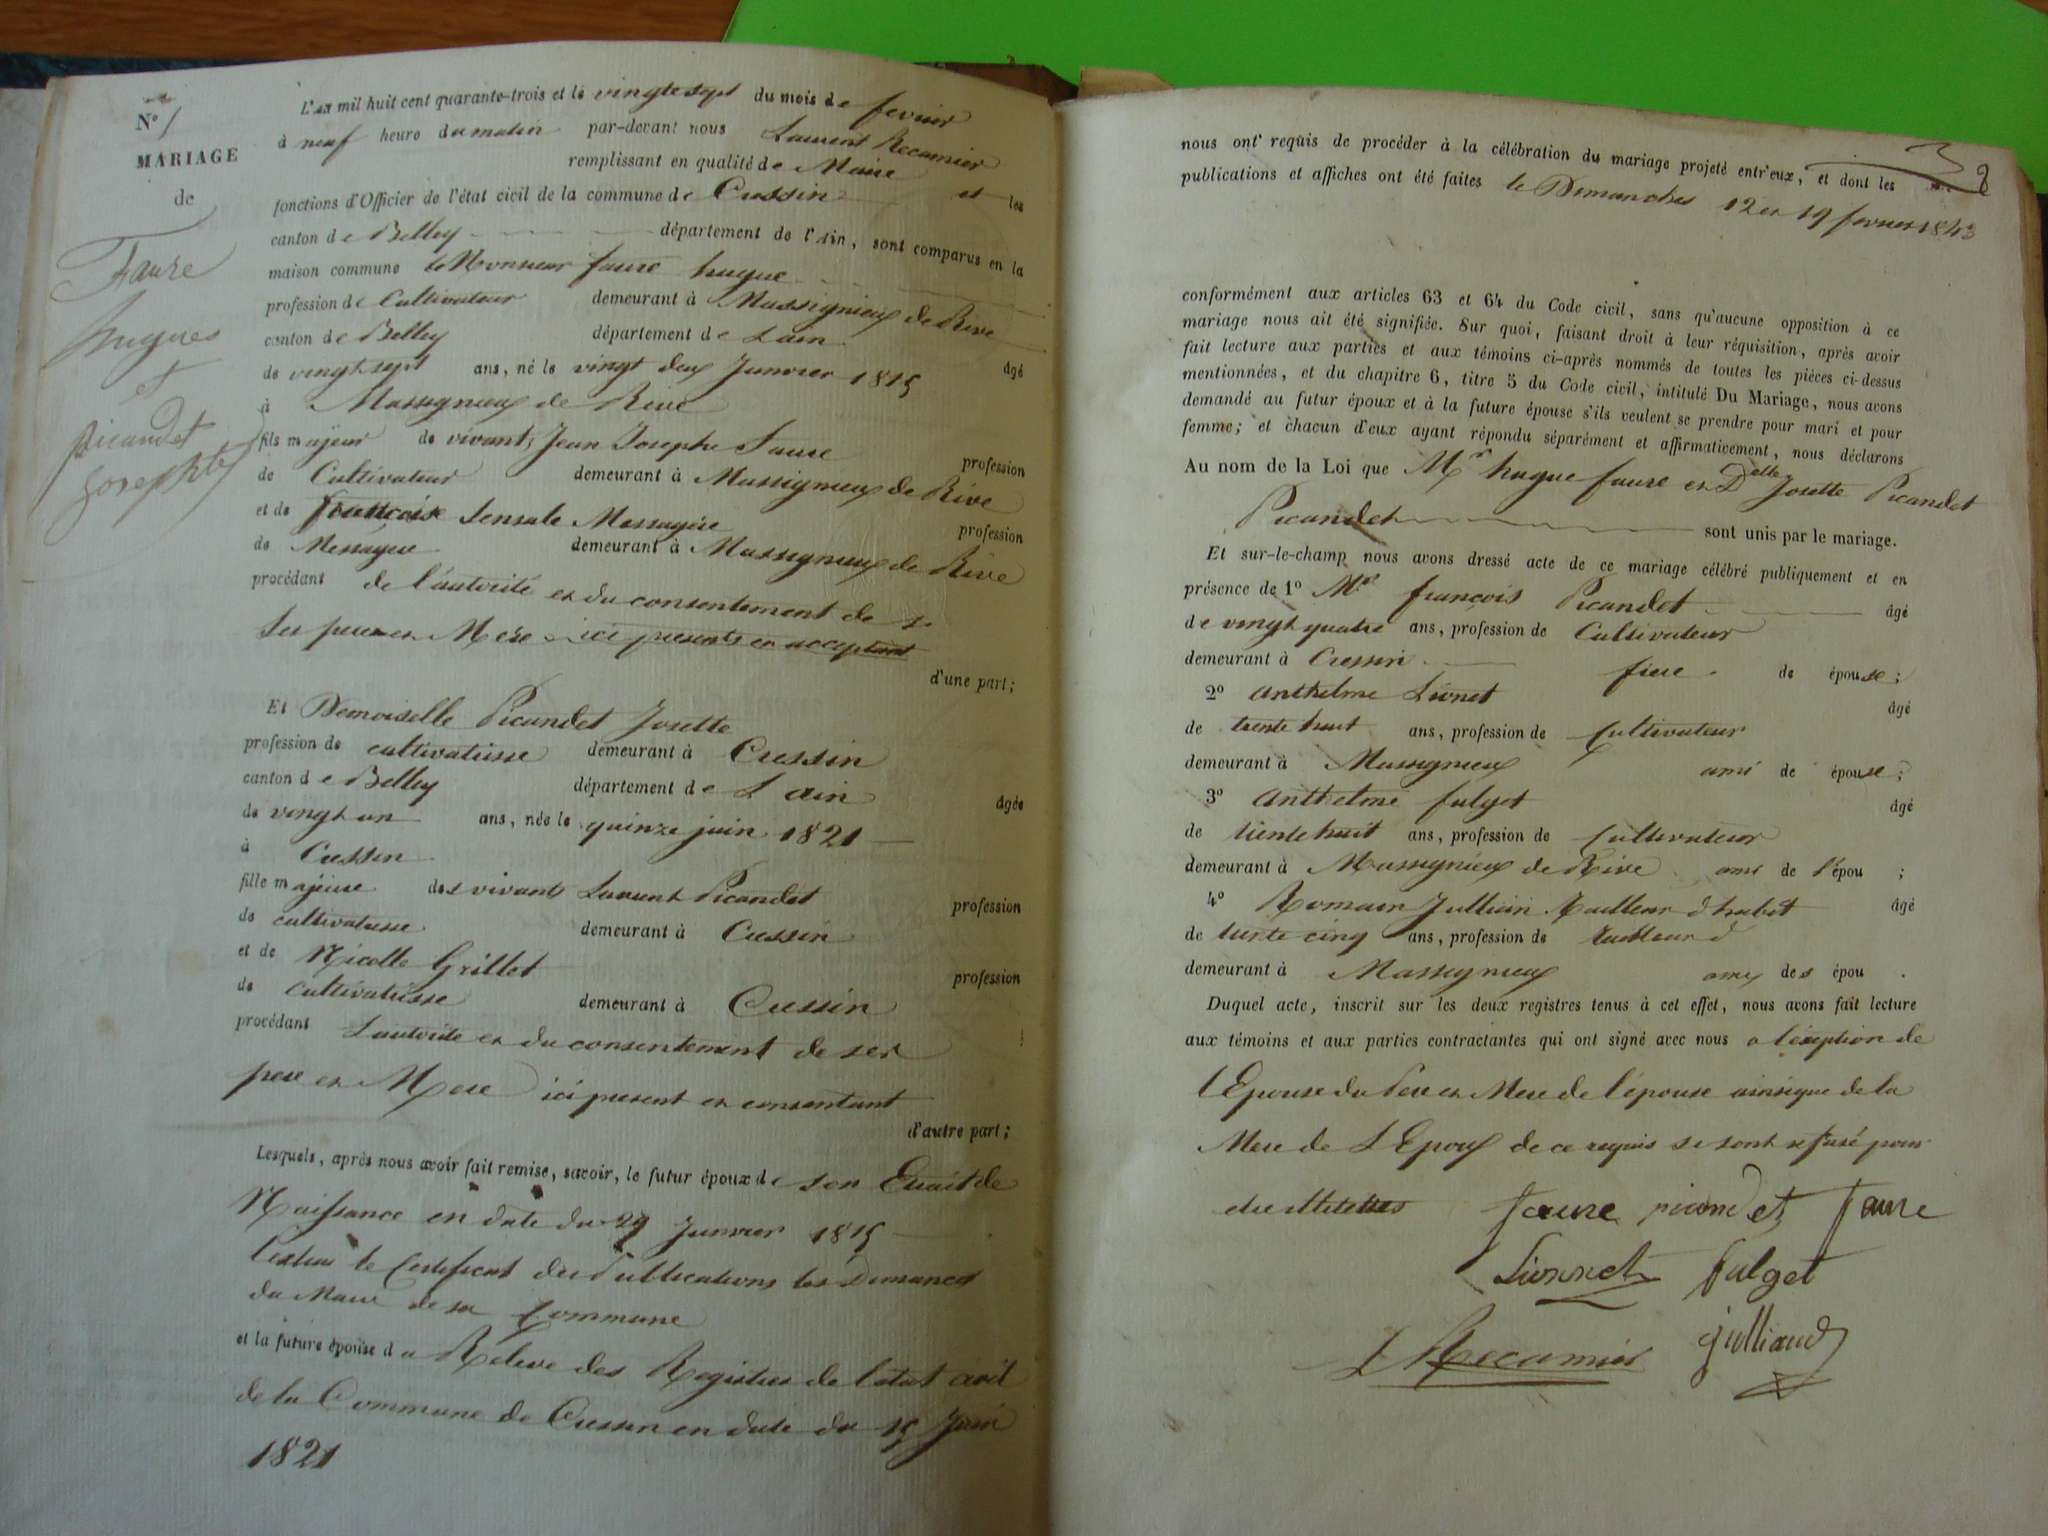 N° 1
MARIAGE
de
Faure
hugues
et
picandet
Josephte
L'an mil huit cent quarante-trois et le vingt sept du mois de fevrier
à neuf heure du matin par-devant nous Laurent Recamier
remplissant en qualité de Maire et les
fonctions d'Officier de l'état civil de la commune de Cressin
canton de Belley département de l'Ain, sont comparus en la
maison commune le Monsieur faure hugue
profession de Cultivateur demeurant à Massignieux de Rive
canton de Belley département de Lain âgé
de vingt sept ans, né le vingt deux Janvier 1815
à Massignieux de Rive
fils majeur de vivants Jean Josephe faure profession
de Cultivateur demeurant à Massignieux de Rive
et de françoise Messagère profession
de Messagere demeurant à Massignieux de Rive
procédant de l'autorité et du consentement de
Ses pere et Mere ici presents et acceptant
d'une part;
Et Demoiselle Picandet Josette
profession de cultivatrisse demeurant à Cressin
canton de Belley département de L ain âgée
de vingt un ans, née le quinze juin 1821
à Cressin
fille majeure des vivants Laurent Picandet profession
de cultivateur demeurant à Cressin
et de Nicolle Grillet profession
de cultivatrisse demeurant à Cressin
procédant Lautorite et du consentement de ses
pere et Mere ici present et consentant
d'autre part;
Lesquels, après nous avoir fait remise, savoir, le futur époux de son Extrait de
Naissance en date du 29 Janvier 1815
le Certificat des Publications les Dimanches
du Maire de sa Commune
et la future épouse du Releve des Registres de letat civil
de la Commune de Cressin en date du 15 Juin
1821
8
nous ont requis de procéder à la célébration du mariage projeté entr'eux, et dont les
publications et affiches ont été faites le Dimanches 12 et 19 fevrier 1843
conformément aux articles 63 et 64 du Code civil, sans qu'aucune opposition à ce
mariage nous ait été signifiée. Sur quoi, faisant droit à leur réquisition, après avoir
fait lecture aux parties et aux témoins ci-après nommés de toutes les pièces ci-dessus
mentionnées, et du chapitre 6, titre 5 du Code civil, intitulé Du Mariage, nous avons
demandé au futur époux et à la future épouse s'ils veulent se prendre pour mari et pour
femme; et chacun d'eux ayant répondu séparément et affirmativement, nous déclarons
Au nom de la Loi que Mr hugue faure et Delle Josette Picandet
Picandet sont unis par le mariage.
Et sur-le-champ nous avons dressé acte de ce mariage célébré publiquement et en
présence de 1° Mr françois Picandet âgé
de vingt quatre ans, profession de Cultivateur
demeurant à Cressin frere de épouse;
2° anthelme Lionet âgé
de trente huit ans, profession de Cultivateur
demeurant à Massignieux ami de épouse;
3° anthelme fulget âgé
de trente huit ans, profession de Cultivateur
demeurant à Massignieux de Rive ami de l'épou ;
4° Romain Jullian tailleur d'habit âgé
de trente cinq ans, profession de tailleur d
demeurant à Massignieux amy des épou .
Duquel acte, inscrit sur les deux registres tenus à cet effet, nous avons fait lecture
aux témoins et aux parties contractantes qui ont signé avec nous a léxeption de
l'Epouse du Pere et Mere de l'épouse ainsique de la
Mere de L'Epoux de ce requis se sont refusé pour
etre illiteres faure picandet faure
Lionnet fulget
L Recamier julliand